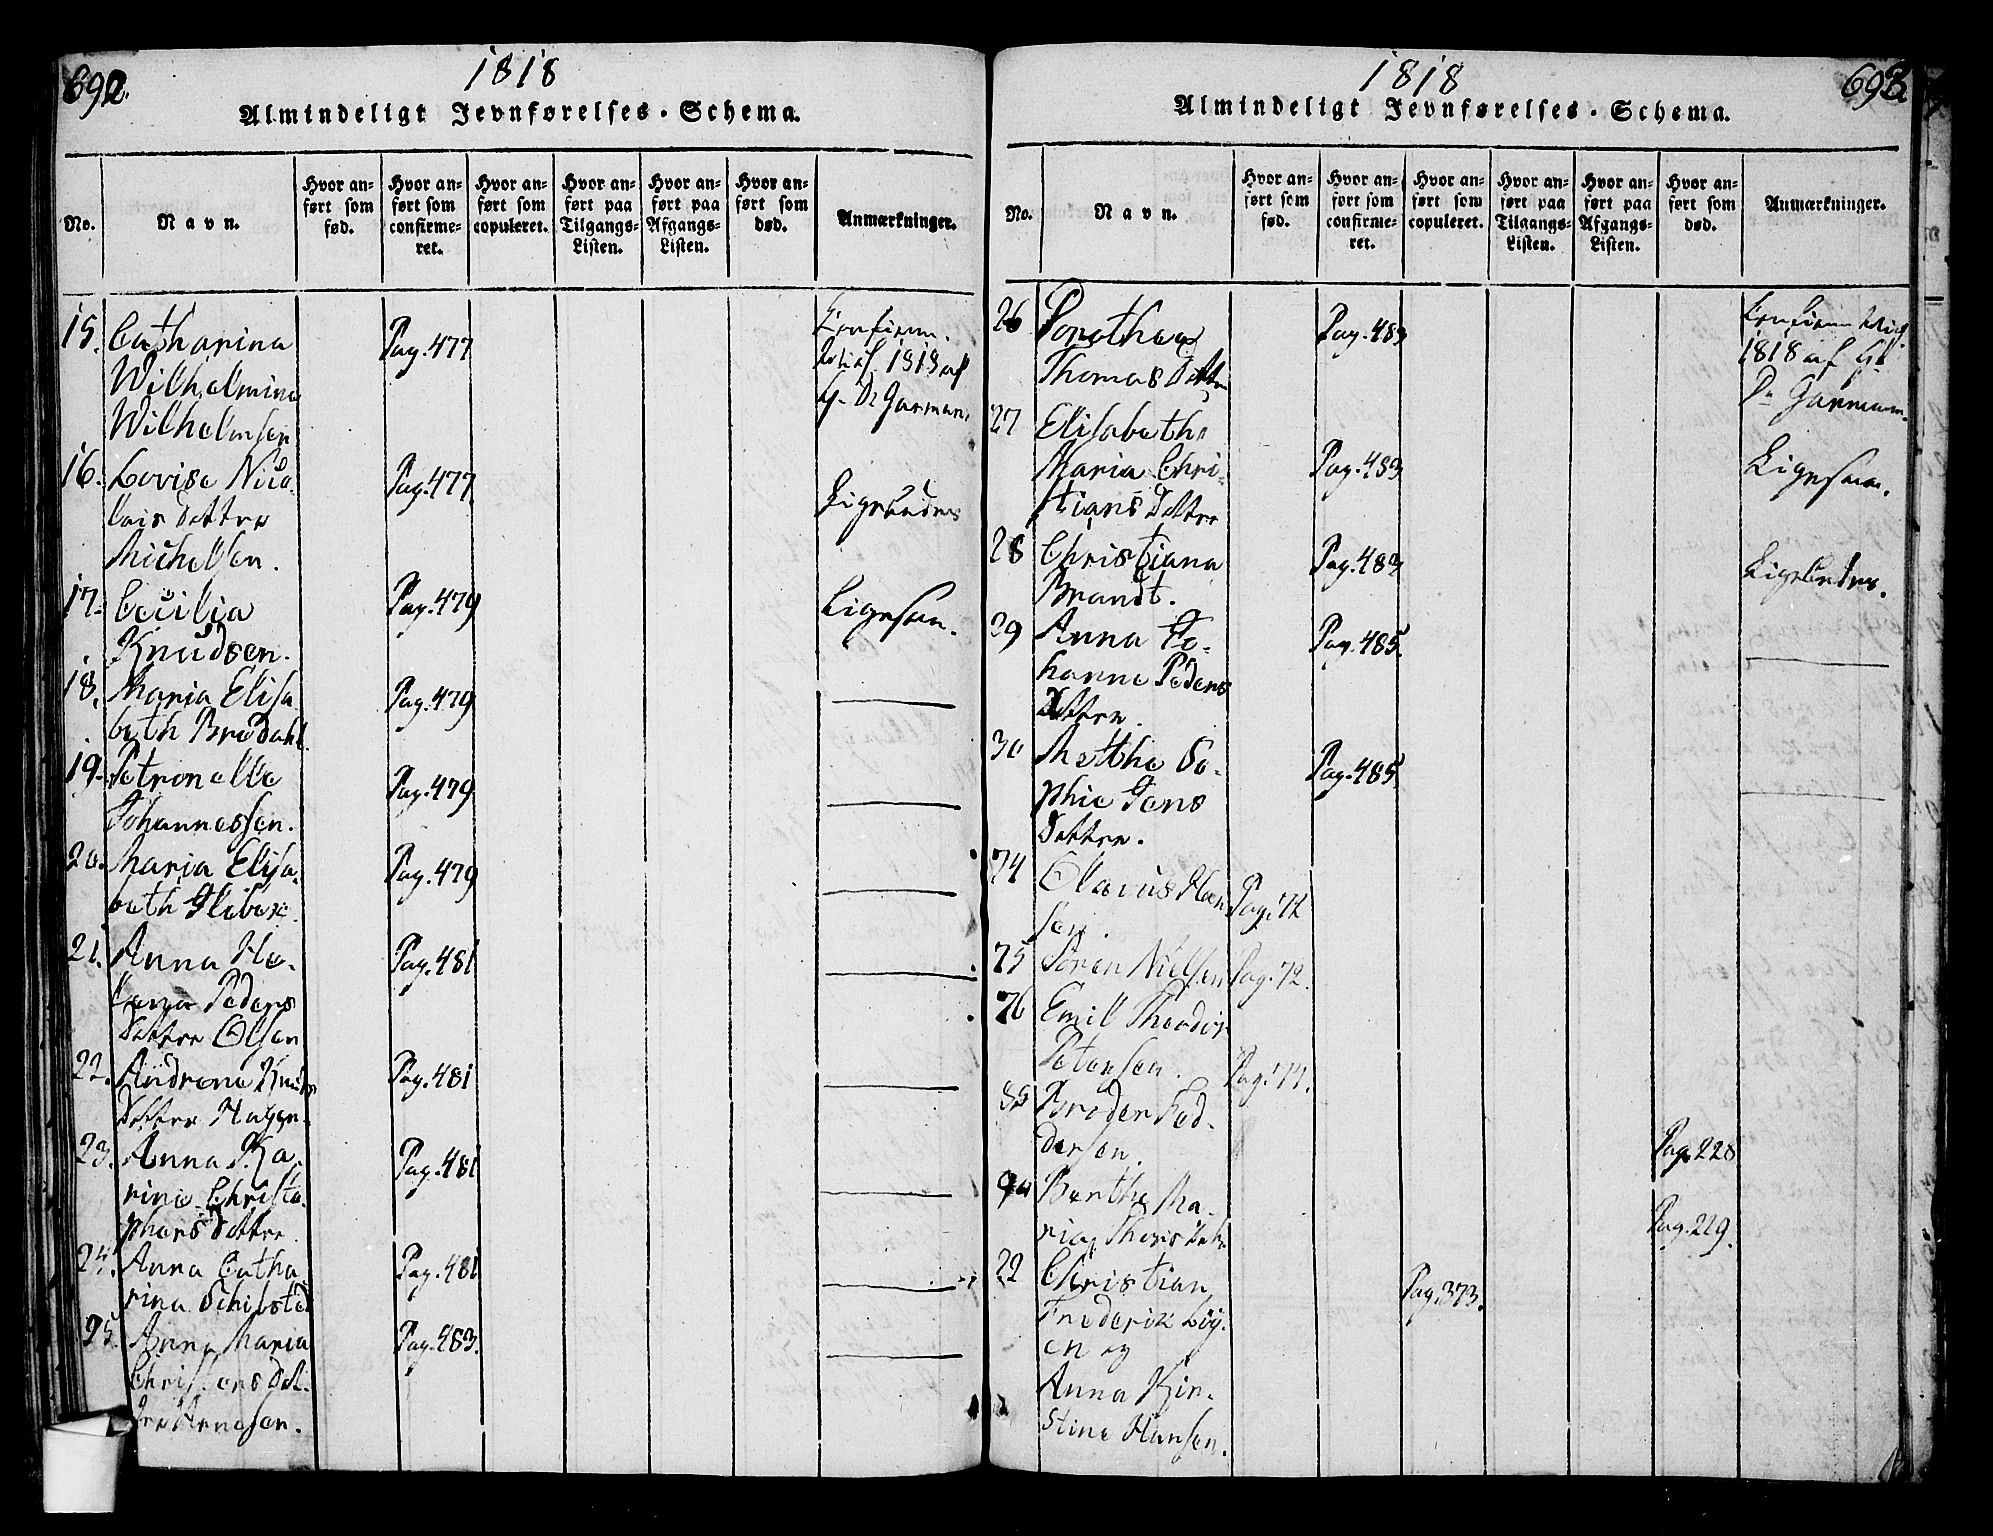 692.
1818
Almindeligt Jevnførelses-Schema.
No.
Navn.
Hvor an-
ført som
fød.
Hvor an-
ført som
confirme-
ret.
Hvor an-
ført som
copuleret.
Hvor an-
ført paa
Tilgangs-
Listen.
Hvor an-
ført paa
Afgangs-
Listen.
Hvor an-
ført som
død.
Anmærkninger.
15. Catharina
Wilhelmina
Wilhelmsen
Pag. 477
Confirm.
1818 af
Garman.
16. Lovisa Nico-
lais Datter
Michelsen.
Pag. 477
Ligeledes
17. Cecilia
Knudsen.
Pag. 479
Ligesaa.
18. Maria Elisa
beth Bredahl.
Pag. 479
19. Petronelle
Johannessen.
Pag. 479
20. Maria Elisa-
beth
Pag. 479
21. Anna He-
lena Peders
Datter Olsen
Pag. 481
22. Andrene Knuds
Datter
Pag. 481
23. Anna Ka-
rine Christo-
phers Datter.
Pag. 481
24. Anna Catha
rina Schibsted
Pag. 481
25. Anna Maria
Christens Dat-
ter Arnesen.
Pag. 483.
1818
693
Almindeligt Jevnførelses-Schema.
No.
Navn.
Hvor an-
ført som
fød.
Hvor an-
ført som
confirme-
ret.
Hvor an-
ført som
copuleret.
Hvor an-
ført paa
Tilgangs-
Listen.
Hvor an-
ført paa
Afgangs-
Listen.
Hvor an-
ført som
død.
Anmærkninger.
26 Dorothea
Thomas Datter
Pag. 483
1818 af
Garmann.
27 Elisabeth
Maria Chri-
stians Datter
Pag. 483
Ligesaa.
28 Christiana
Brandt.
Pag. 483
Ligeledes.
29 Anna Jo-
hanne Peders
Datter.
Pag. 485.
30 Methe So-
phie Jens
Datter.
Pag. 485
74 Olavus Han
sen.
Pag. 72
75 Søren Nielsen
Pag. 72.
76 Emil Theodor
Petersen.
Pag. 74.
89 Broder Fed-
dersen.
Pag. 228
90 Berthe Ma-
ria
Pag. 229.
22 Christian
Frederik
og
Anna Kir-
stine Hansen.
Pag. 373.